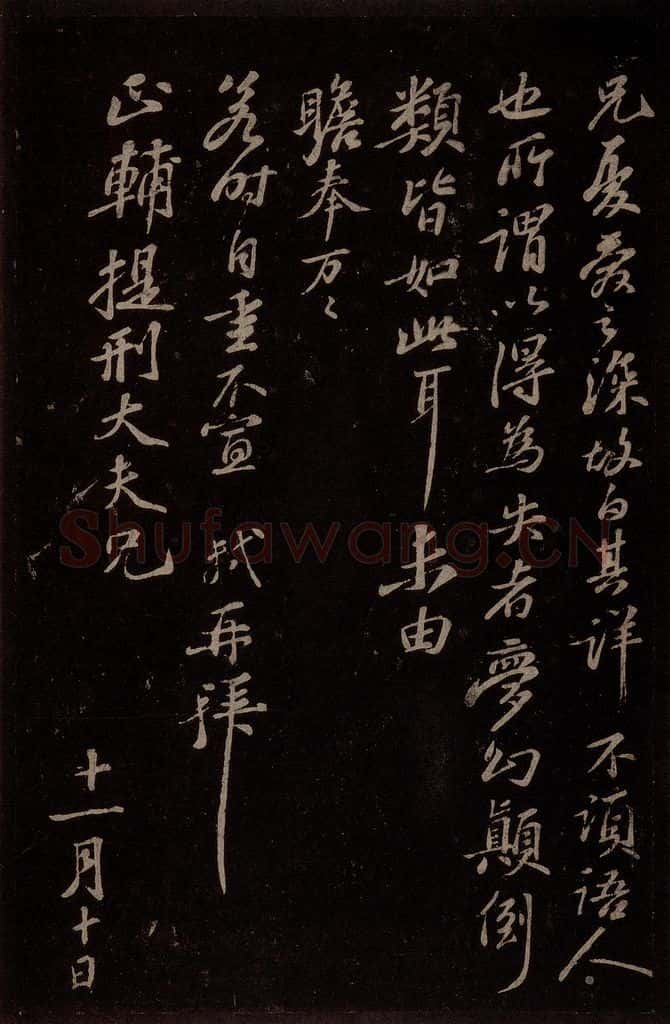 兄憂愛之深故白其詳不須語人
也所謂以得為失者夢幻顛倒
類皆如此耳未由
瞻奉万〻
若时自重不宣 軾再拜
正輔提刑大夫兄
十一月十日
Shufawang.CN